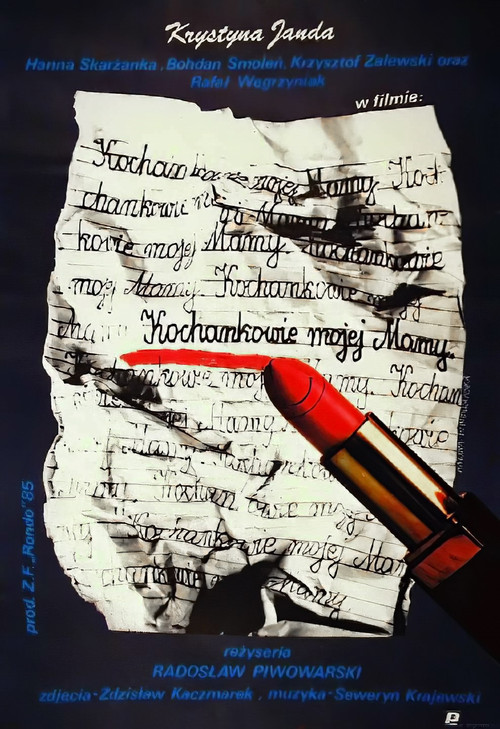 Krystyna Janda
Hanna Skarżanka, Bohdan Smoleń, Krzysztof Zalewski oraz
Rafał Węgrzyniak
w filmie:
Kochankowie mojej Mamy. Koch
chankowie mojej Mamy. Kochan
kowie mojej Mamy. Kochankowie
mojej Mamy. Kochankowie mojej
Mamy. Kochankowie mojej Mamy.
Kochankowie mojej Mamy. Kochan
kowie mojej Mamy.
Mamy. Kochankowie
Kochankowie mojej
Kochankowie mojej Mam
chankowie Mamy
prod. Z.F. „Rondo” 85
reżyseria
RADOSŁAW PIWOWARSKI
zdjęcia-Zdzisław Kaczmarek, muzyka-Seweryn Krajewski